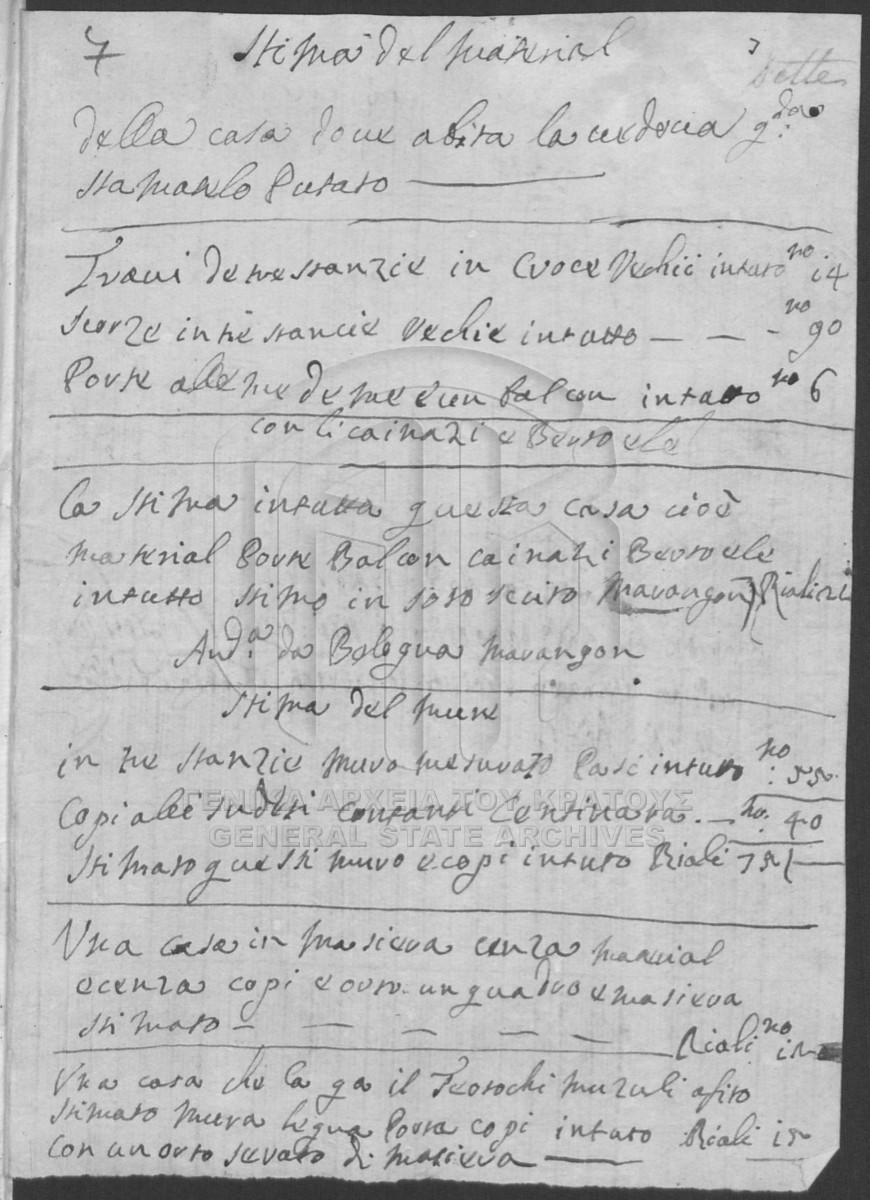 7 Stima del material 7
sette
della casa doue abita la uedoua q.da
Stamatelo Putato
Traui de tre stanzie in Croce Vechii intuto no 14
Scorze in tre stancie Vechie intutto — — - no 90
Porte alle tre de me e un balcon intuto no 6
con li cainazi e Bertoele
La Stima in tutta questa casa cioè
material Porte Balcon cainazi Bertoele
intutto stimo in soto scrito Marangon Riali
And.a da Bologna Marangon
Stima del mure
in tre stanzie muro mesurato Pasi intuto no: 55
Copi alle sudeti contanti Centinara . — no: 40
Stimato questi muro e copi intuto Riali 75
Vna casa in masiera cenza material
e cenza copi e orto un quadro e masiera
stimato — — — — — Riali no
Vna casa che la ga il Teotochi Muzuli afito
Stimato mura legna Porta copi intuto Riali 15
Con un orto serato di masiera —
ΓΕΝΙΚΑ ΑΡΧΕΙΑ ΤΟΥ ΚΡΑΤΟΥΣ
GENERAL STATE ARCHIVES